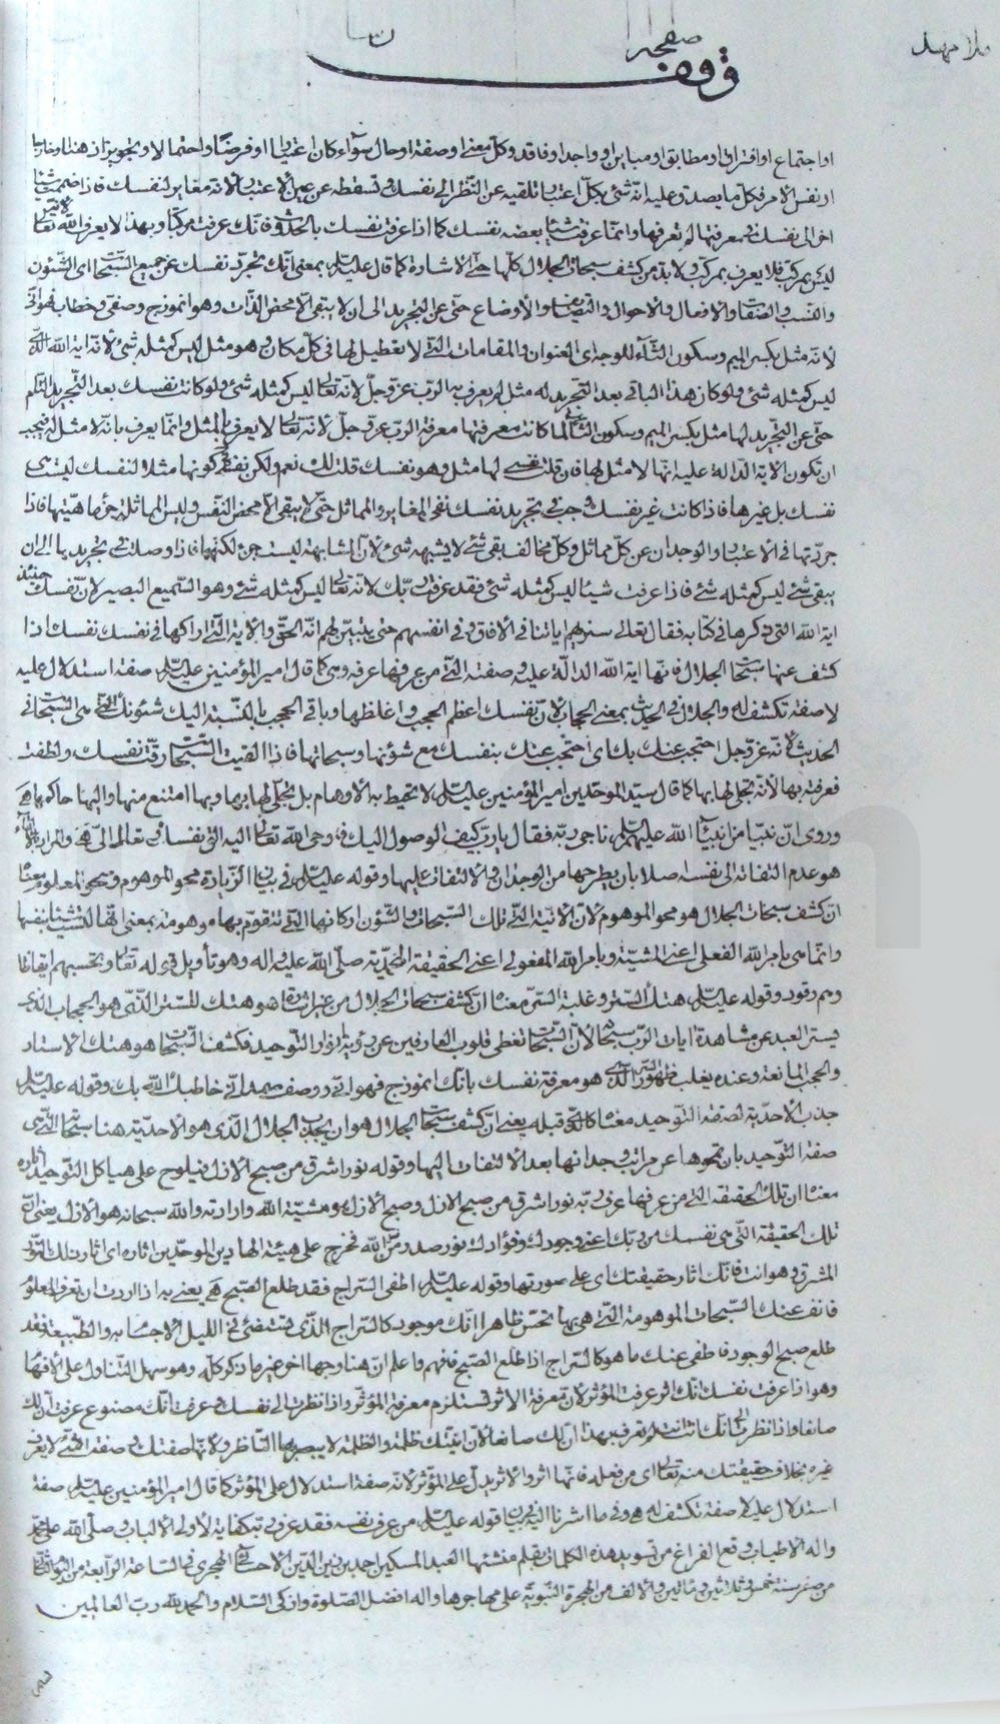 ملا مهد
صفحه
وقف
او اجتماع او افتراق او مطابق او مباين او واجد او فاقد وكل معنى او صفة او حال سوآء كان اعتباريا او فرضا و احتمالا و تجويزا ذهنا و خارجا
او نفس الامر فكل ما يصدق عليه انه شئ بكل اعتبار تلقيه عن النظر الى نفسك و تسقطه عن عين الاعتبار لانه مغاير لنفسك فاذا ضممت شيئا
الى نفسك في معرفتها لم تعرفها و انما عرفت شيئا بعضه نفسك كما اذا عرفت نفسك بالحدوث فانك عرفت مركبا و بهذا لا يعرف الله تعالى لانه
ليس بمركب فلا يعرف بمركب و لابد من كشف سبحات الجلال كلها حتى الاشارة كما قال عليه السلم بمعنى انك تجرد نفسك عن جميع السبحات اى الشئون
والنسب و الصفات و الافعال و الاحوال و الاوضاع حتى عن التجريد الى ان لا يبقى الا محض الذات و هو انموذج وصفى و خطاب فهوانى
لانه مثل بكسر الميم و سكون الثآء للوجه اى العنوان و المقامات التى لا تعطيل لها فى كل مكان و هو مثل ليس كمثله شئ لانه اية الله الذى
ليس كمثله شئ و لو كان هذا الباقى بعد التجريد له مثل لم يعرف به الرب عز و جل لانه تعالى ليس كمثله شئ و لو كانت نفسك بعد التجريد التام
حتى عن التجريد لها مثل بكسر الميم و سكون الثآء لما كانت معرفتها معرفة الرب عز و جل لانه تعالى لا يعرف بالمثل و انما يعرف بانه لا مثل له فيجب
ان تكون الاية الدالة عليه انها لا مثل لها فان قلت لها مثل و هو نفسك قلت لك نعم و لكن كونها مثلا لنفسك ليست هى
نفسك بل غيرها فاذا كانت غير نفسك وجب فى تجريد نفسك نفى المغاير و المماثل حتى لا يبقى الا محض النفس و ليس المماثلة جزء ماهيتها فاذا
جردتها فى الاعتبار و الوجدان عن كل مماثل و كل مخالف بقى شئ لا يشبهه شئ لان المشابهة ليست جزء لكنهها فاذا وصلت فى تجريدها الى ان
يبقى شئ ليس كمثله شئ فاذا عرفت شيئا ليس كمثله شئ فقد عرفت ربك لانه تعالى ليس كمثله شئ و هو السميع البصير لان نفسك حينئذ
اية الله التى ذكرها فى كتابه فقال تعالى سنريهم اياتنا فى الافاق و فى انفسهم حتى يتبين لهم انه الحق و الاية التى اراكها فى نفسك نفسك اذا
كشف عنها سبحات الجلال فانها اية الله الدالة عليه و صفته التى من عرفها عرفه وهى كما قال امير المؤمنين عليه السلم صفة استدلال عليه
لا صفة تكشف له و الجلال فى الحديث بمعنى الحجاب لان نفسك اعظم الحجب و اغلظها و باقى الحجب بالنسبة اليك شئونك التى هى السبحات فى
الحديث لانه عز و جل احتجب عنك بك اى احتجب عنك بنفسك مع شؤنها و سبحاتها فاذا القيت السبحات رقت نفسك و لطفت
فعرفته بها لانه تجلى لها بها كما قال سيد الموحدين امير المؤمنين عليه السلم لا تحيط به الاوهام بل تجلى لها بها و بها امتنع منها و اليها حاكمها هـ
و روى ان نبيا من انبيآء الله عليهم السلم ناجى ربه فقال يا رب كيف الوصول اليك فاوحى الله تعالى اليه الق نفسك و تعال الى هـ و المراد بالالقاء
هو عدم التفاته الى نفسه اصلا بان يطرحها من الوجدان و الالتفات عليها و قوله عليه السلم فى بيان الزيادة محو الموهوم و صحو المعلوم معناه
ان كشف سبحات الجلال هو محو الموهوم لان الانية التى تلك السبحات و الشئون اركانها التى تتقوم بها موهومة بمعنى انها ليست شيئا بنفسها
و انما هى بامر الله الفعلى اعنى المشية و بامر الله المفعولى اعنى الحقيقة المحمدية صلى الله عليه و اله و هو تأويل قوله تعالى و تحسبهم ايقاظا
و هم رقود و قوله عليه السلم هتك الستر و غلبة السر معناه ان كشف سبحات الجلال من غير اشارة هو هتك للستر الذى هو الحجاب الذى
يستر العبد عن مشاهدة ايات الرب سبحانه لان السبحات تغطى قلوب العارفين عن رؤية انوار التوحيد فكشف السبحات هو هتك الاستار
و الحجب المانعة و عنده يغلب ظهور السر الذى هو معرفة نفسك بانك انموذج فهوانى و وصف خاطبك الله بك و قوله عليه السلم
جذب الاحدية لصفة التوحيد معناه كالذى قبله يعنى ان كشف سبحات الجلال هو ان يجذب الجلال الذى هو الاحدية هنا سبحاته التى هى
صفة التوحيد بان تمحوها عن مراتب وجدانها بعد الالتفات اليها و قوله نور اشرق من صبح الازل فيلوح على هياكل التوحيد اثاره
معناه ان تلك الحقيقة التى من عرفها عرف ربه نور اشرق من صبح الازل و صبح الازل هو مشية الله و ارادته و الله سبحانه هو الازل يعنى ان
تلك الحقيقة التى هى نفسك من ربك اعنى وجودك و فؤادك نور صدر من الله فخرج على هيئة الهادين الموحدين اثاره اى اثار ذلك النور
المشرق و هو انت فانك اثار حقيقتك اى على صورتها و قوله عليه السلم اطفئ السراج فقد طلع الصبح هـ يعنى به اذا اردت ان تعرف المعلوم
فانف عنك السبحات الموهومة التى هى بها تحس ظاهرا انك موجود كالسراج الذى تستضئ به فى الليل الاجسام و الطبيعة فقد
طلع صبح الوجود فاطفئ عنك ما هو كالسراج اذا طلع الصبح فافهم و اعلم ان هنا وجها اخر غير ما ذكر كله و هو سهل التناول على الافهام
و هو اذا عرفت نفسك انك اثر عرفت المؤثر لان معرفة الاثر تستلزم معرفة المؤثر و اذا نظرت الى نفسك و عرفت انك مصنوع عرفت ان لك
صانعا و اذا نظرت الى انك انت انت لم تعرف بهذا ان لك صانعا لان انيتك ظلمة و الظلمة لا يبصر بها الناظر و لانها صفتك و صفة الشئ لا يعرف
غيره بخلاف حقيقتك منه تعالى اى من فعله فانها اثر و الاثر يدل على المؤثر لانه صفة استدلال على المؤثر كما قال امير المؤمنين عليه السلم صفة
استدلال عليه لا صفة تكشف له هـ و فيما اشرنا اليه فى بيان قوله عليه السلم من عرف نفسه فقد عرف ربه كفاية لاولى الالباب و صلى الله على محمد
و اله الاطياب وقع الفراغ من تسويد هذه الكلمات بقلم منشئها العبد المسكين احمد بن زين الدين الاحسائى الهجرى فى الساعة الرابعة من
من صفر سنة خمس و ثلاثين و مائتين و الالف من الهجرة النبوية على مهاجرها و اله افضل الصلوة و ازكى السلام و الحمد لله رب العالمين